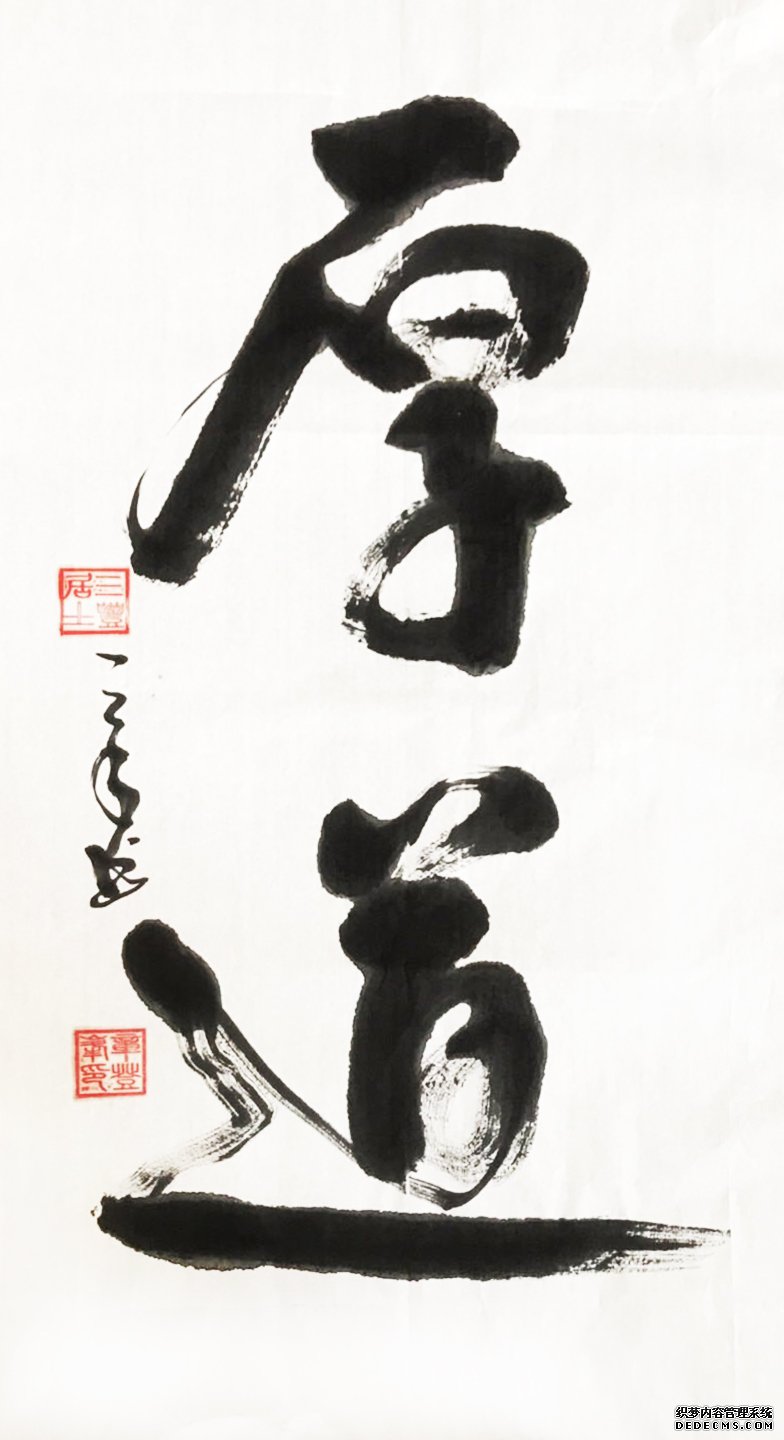 厚道
三豐居士
织梦内容管理系统
DEDECMS.COM